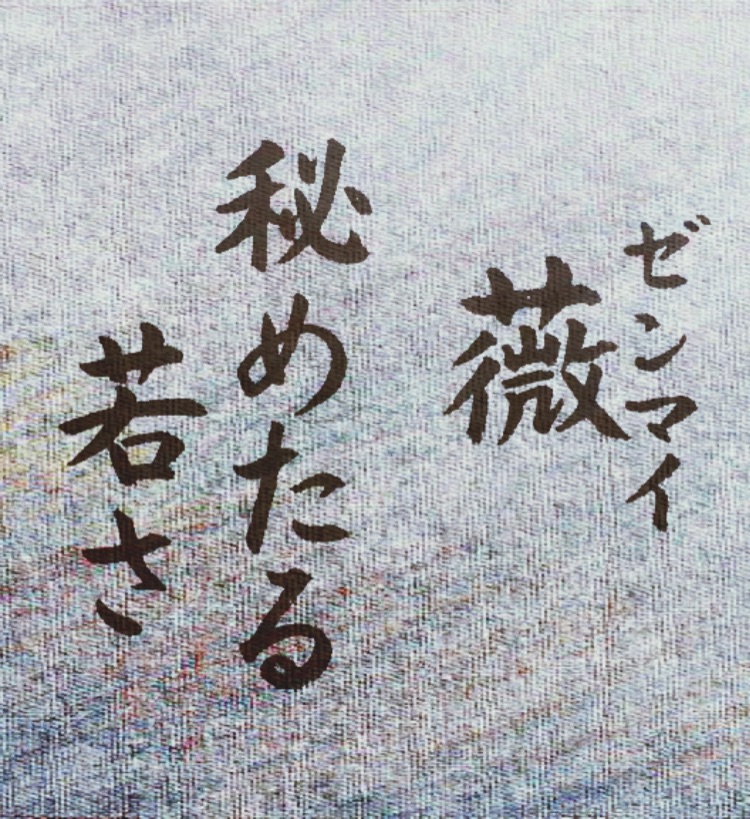 ゼンマイ
薇
秘めたる
若さ